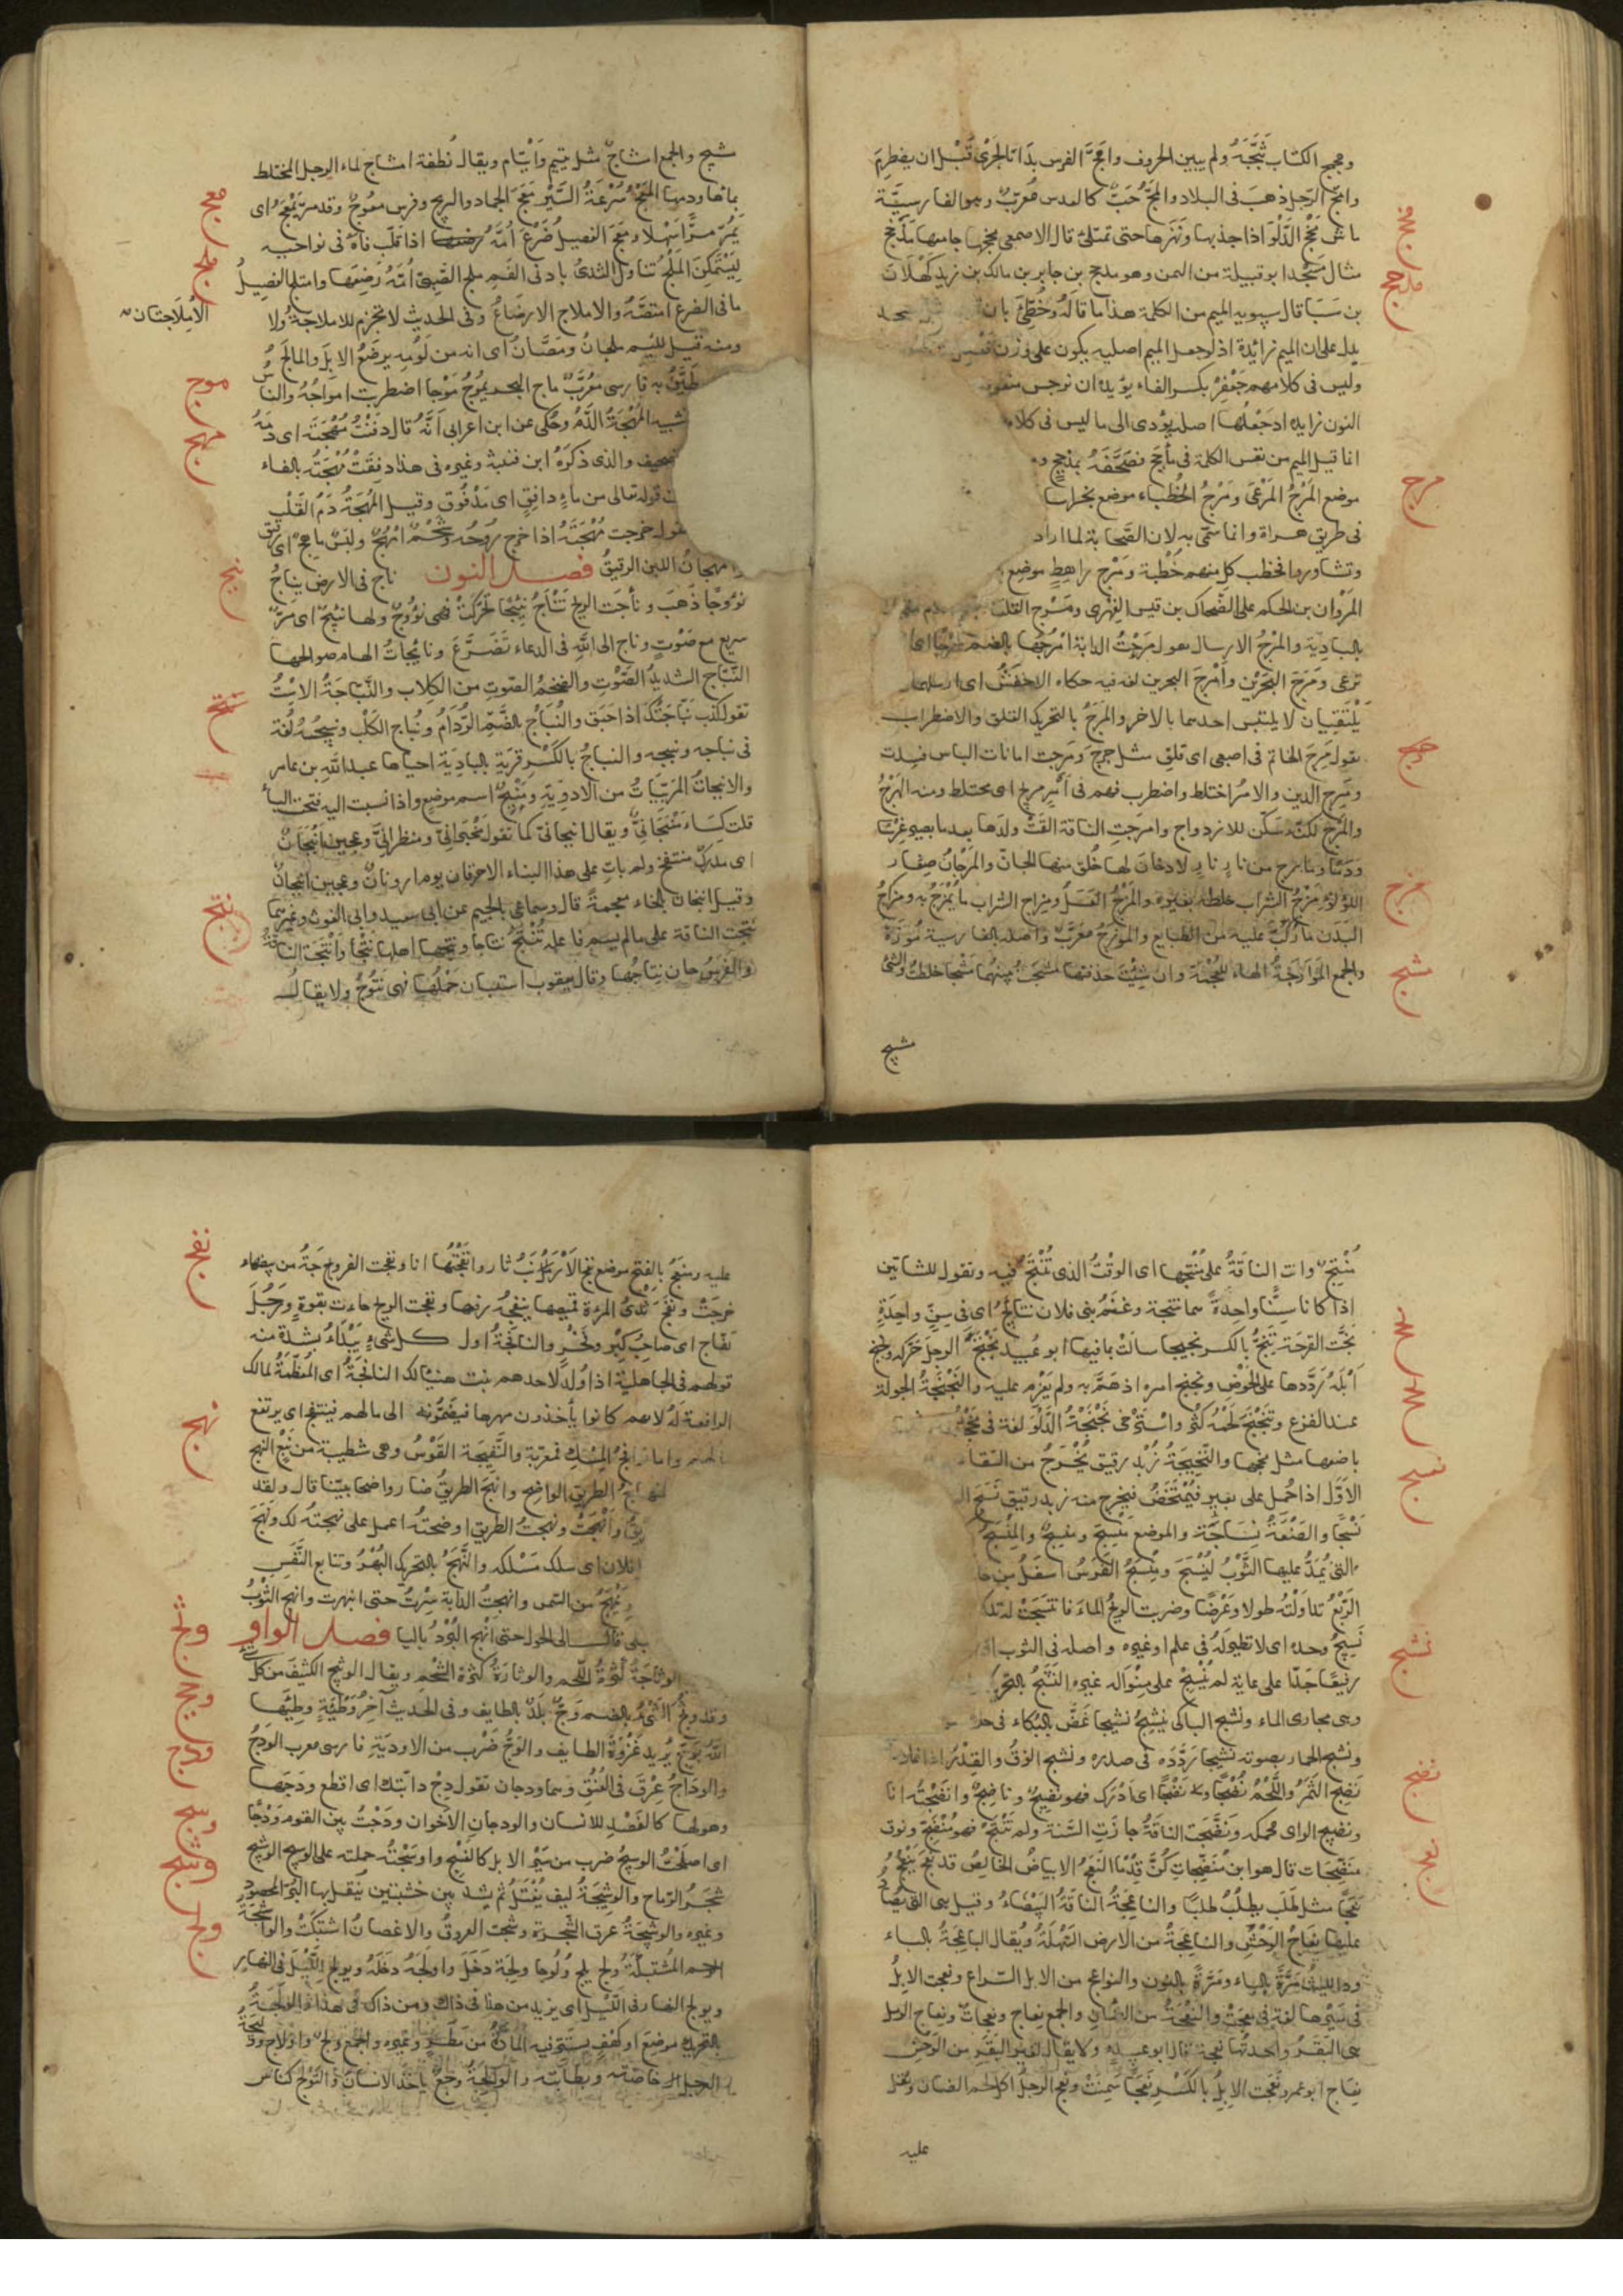 ومجمج الكتاب ثبجه ولم يبين الحروف وامج الفرس بدا بالجرى قبل ان يضطرم
وامج الرجل ذهب فى البلاد والمج حب كالعدس معرب وهو بالفارسية
ماش مخج الدلو اذا جذبها ونهزها حتى تمتلئ قال الاصمعى مخجها جامعها مذحج
مثال مسجد ابو قبيلة من اليمن وهو مذحج بن جابر بن مالك بن زيد كهلان
بن سبا قال سيبويه الميم من الكلمة هذا ما قاله وخطئ بان
يدل على ان الميم زائدة اذ لو جعل الميم اصلية يكون على وزن
وليس فى كلامهم جعفر بكسر الفاء يؤيده ان نرجس
النون زايدة اد جعلها اصل يؤدى الى ما ليس فى كلا
انا قيل الميم من نفس الكلمة فى مأجج فصحفه بمذحج
موضع المرج المرعى ومرج الخطباء موضع بخراسا
فى طريق هراة وانما سمى به لان الصحابة لما اراد
وتشاوروا فخطب كل منهم خطبة ومرج راهط موضع
المروان بن الحكم على الضحاك بن قيس الفهرى ومرج القلعة
بالبادية والمرج الارسال يقول مرجت الدابة امرجها بالضم مرجا اى
ترعى ومرج البحرين وامرج البحرين لغة فيه حكاه الاخفش اى ارسلهما
يلتقيان لا يلتبس احدهما بالاخر والمرج بالتحريك القلق والاضطراب
يقول مرج الخاتم فى اصبعى اى قلق مثل جرج ومرجت امانات الناس فسدت
ومرج الدين والامر اختلط واضطرب فهم فى امر مريج اى مختلط ومنه الهرج
والمرج لكنه سكن للازدواج وامرجت الناقة القت ولدها بعد ما يصير غرسا
ودما وما مارج من نار نار لا دخان لها خلق منها الجان والمرجان صغار
اللؤلؤ مزج الشراب خلطه بغيره والمزج العسل ومزاج الشراب ما يمزج به ومزاج
البدن ما ركب عليه من الطبايع والموزج معرب واصله بالفارسية موزه
والجمع الموازجة الهاء للعجمة وان شئت حذفتها مشجت بينهما مشجا خلطت والشئ
مشيج
مرج
مزج
مشج
مشيج والجمع امشاج مثل يتيم وايتام ويقال نطفة امشاج لماء الرجل المختلط
بمائها ودمها المعج سرعة السير معج الحمار والريح وفرس معوج وقد مر يمعج اى
يمر مرا سهلا ومعج الفصيل ضرع امه اذا قلب فاه فى نواحيه
ليستمكن الملج تناول الثدى بادنى الفم ملج الصبى امه رضعها وامتلج الفصيل
ما فى الضرع امتصه والاملاج الارضاع وفى الحديث لا تحرم الاملاجة ولا
الاملاجتان
ومنه قيل للئيم ملجان ومصان اى انه من لومه يرضع الابل والمالج
يطين به فارسى معرب ماج البحر يموج موجا اضطربت امواجه والناس
المهجة الدم وحكى عن ابن اعرابى انه قال دفنت مهجته اى دمه
تصحيف والذى ذكره ابن قتيبة وغيره فى هذا دفقت مهجته بالفاء
قوله تعالى من ماء دافق اى مدفوق وقيل المهجة دم القلب
يقول خرجت مهجته اذا خرج روحه وشحم امهج ولبن ماهج اى رقيق
مهجان اللبن الرقيق فصل النون ناج فى الارض يناج
نؤوجا ذهب ونأجت الريح تناج نئيجا تحركت فهى نؤوج ولها نئيج اى مر
سريع مع صوت وناج الى الله فى الدعاء تضرع ونائجات الهام صوالحها
النباج الشديد الصوت والضخم الصوت من الكلاب والنباجة الاست
تقول كذب نباجتك اذا حبق والنباج بالضم الردام ونباج الكلب ونبيجه لغة
فى نباحه ونبيحه والنباج بالكسر قرية بالبادية احياها عبد الله بن عامر
والانبجات المربيات من الادوية ومنبج اسم موضع واذا نسبت اليه فتحت الباء
قلت كساء منبجانى ويقال انبجانى كما تقول مخبرانى ومنظرانى وعجين انبجان
اى مدرك منتفخ ولم يات على هذا البناء الا حرفان يوم ارونان وعجين انبجان
وقيل انبخان بالخاء معجمة قال وسماعى بالجيم عن ابى سعيد وابى الغوث وغيرهما
نتجت الناقة على ما لم يسم فاعله تنتج نتاجا ونتجها اهلها نتجا وانتجت الناقة
والفرس حان نتاجها وقال يعقوب استبان حملها فهى نتوج ولا يقال
معج
ملج
موج
مهج
نبج
نتج
منتج واتت الناقة على منتجها اى الوقت الذى تنتج فيه وتقول للشاتين
اذا كانا سنا واحدة هما نتيجة وغنم بنى فلان نتائج اى فى سن واحدة
نجت القرحة تنج بالكسر نجيجا سالت بما فيها ابو عبيد نجنج الرجل حركه ونجنج
ابله رددها على الحوض ونجنج امره اذ هم به ولم يعزم عليه والنجنجة الجولة
عند الفزع وتنجنج لحمه كثر واسترخى نخجت الدلو لغة فى مخجت
باضعها مثل مخجها والنخيجة زبد رقيق يخرج من السقاء
الاول اذا حمل على بعير فيمتخض فيخرج منه زبد رقيق نسج ال
نسجا والصنعة نساجة والموضع منسج ومنسج والمنسج
التى يمد عليها الثوب لينسج ومنسج الفرس اسفل من حا
الريح تداولته طولا وعرضا وضربت الريح الماء فانتسجت له
نسيج وحده اى لا نظير له فى علم او غيره واصله فى الثوب اذا
رفيعا جدا على عاية لم ينسج على منواله غيره النشج بالتحريك
وهى مجارى الماء ونشج الباكى ينشج نشيجا غص بالبكاء فى حلقه
ونشج الحمار بصوته نشيجا ردده فى صدره ونشج الزق والقدر
نضج الثمر واللحم نضجا ونضجا اى ادرك فهو نضيج وناضج وانضجته انا
ونضيج الراى محكمه ونضجت الناقة جازت السنة ولم تنتج فهو منضج ونوق
منضجات قال هو ابن منضجات كن قدما النعج الابياض الخالص قد نعج ينعج
نعجا مثل طلب يطلب طلبا والناعجة الناقة البيضاء وقيل هى التى يصاد
عليها نعاج الوحش والناعجة من الارض السهلة ويقال الباعجة بالباء
مرة بالياء ومرة بالنون والنواعج من الابل السراع ونعجت الابل
فى سيرها لغة فى معجت والنعجة من الضان والجمع نعاج ونعجات ونعاج الرمل
هى البقر واحدتها نعجة قال ابو عبيدة ولا يقال لغير البقر من الوحش
نعاج ابو عمرو نعجت الابل بالكسر نعجا سمنت ونعج الرجل اكل لحم الضان وثقل
عليه
نسج
نشج
نضج
نعج
عليه ومنعج بالفتح موضع نفج الارنب ثار وانفجتها انا ونفجت الفروجة من بيضها
خرجت ونفج ثدى المرءة قميصها ينفجه رفعها ونفجت الريح جاءت بقوة ورجل
نفاج اى صاحب كبر وفخر والنافجة اول كل شئ يبدا بشدة منه
قولهم فى الجاهلية اذا ولد لاحدهم بنت هنيئا لك النافجة اى المعظمة لمالك
الرافعة له لانهم كانوا يأخذون مهرها فيضمونه الى مالهم فينتفج اى يرتفع
واما نوافج المسك فمعربة والنفيجة القوس وهى شطيبة من نبع النهج
المنهاج الطريق الواضح وانهج الطريق صار واضحا بينا قال ولقد
وانهجت ونهجت الطريق اوضحته اعمل على نهجته لك ونهج
فلان اى سلك مسلكه والنهج بالتحريك البهر وتتابع النفس
من السمن وانهجت الدابة سرت حتى انبهرت وانهج الثوب
بلى قال الى الحول حتى انهج البرد باليا فصل الواو
الوثاجة كثرة اللحم والوثارة كثرة الشحم ويقال الوثيج الكثيف من كل
وقد وثج الشئ بالضم وج بلد بالطايف وفى الحديث آخر وطئة وطئها
الله بوج يريد غزوة الطايف والوج ضرب من الادوية فارسى معرب الودج
والوداج عرق فى العنق وهما ودجان تقول دج دابتك اى اقطع ودجها
وهو لها كالفصد للانسان والودجان الاخوان ودجت بين القوم ودجا
اى اصلحت الوسيج ضرب من سير الابل كالنسج واوسجته حملته على الوسيج الوشيج
شجر الرماح والوشيجة ليف يفتل ثم يشد بين خشبتين ينقل بها البر المحصود
وغيره والوشيجة عرق الشجرة وشجت العروق والاغصان اشتبكت والواشجة
الرحم المشتبكة ولج يلج ولوجا ولجة دخل واولجه دخله ويولج الليل فى النهار
ويولج النهار فى الليل اى يزيد من هذا فى ذلك ومن ذاك فى هذا والولجة
بالتحريك موضع او كهف يستتر فيه المار من مطر وغيره والجمع ولج واولاج ووليجة
الرجل خاصته وبطانته والولجة وجع ياخذ الانسان والتولج كناس
نفج
نهج
وثج
ودج
وسج
وشج
ولج